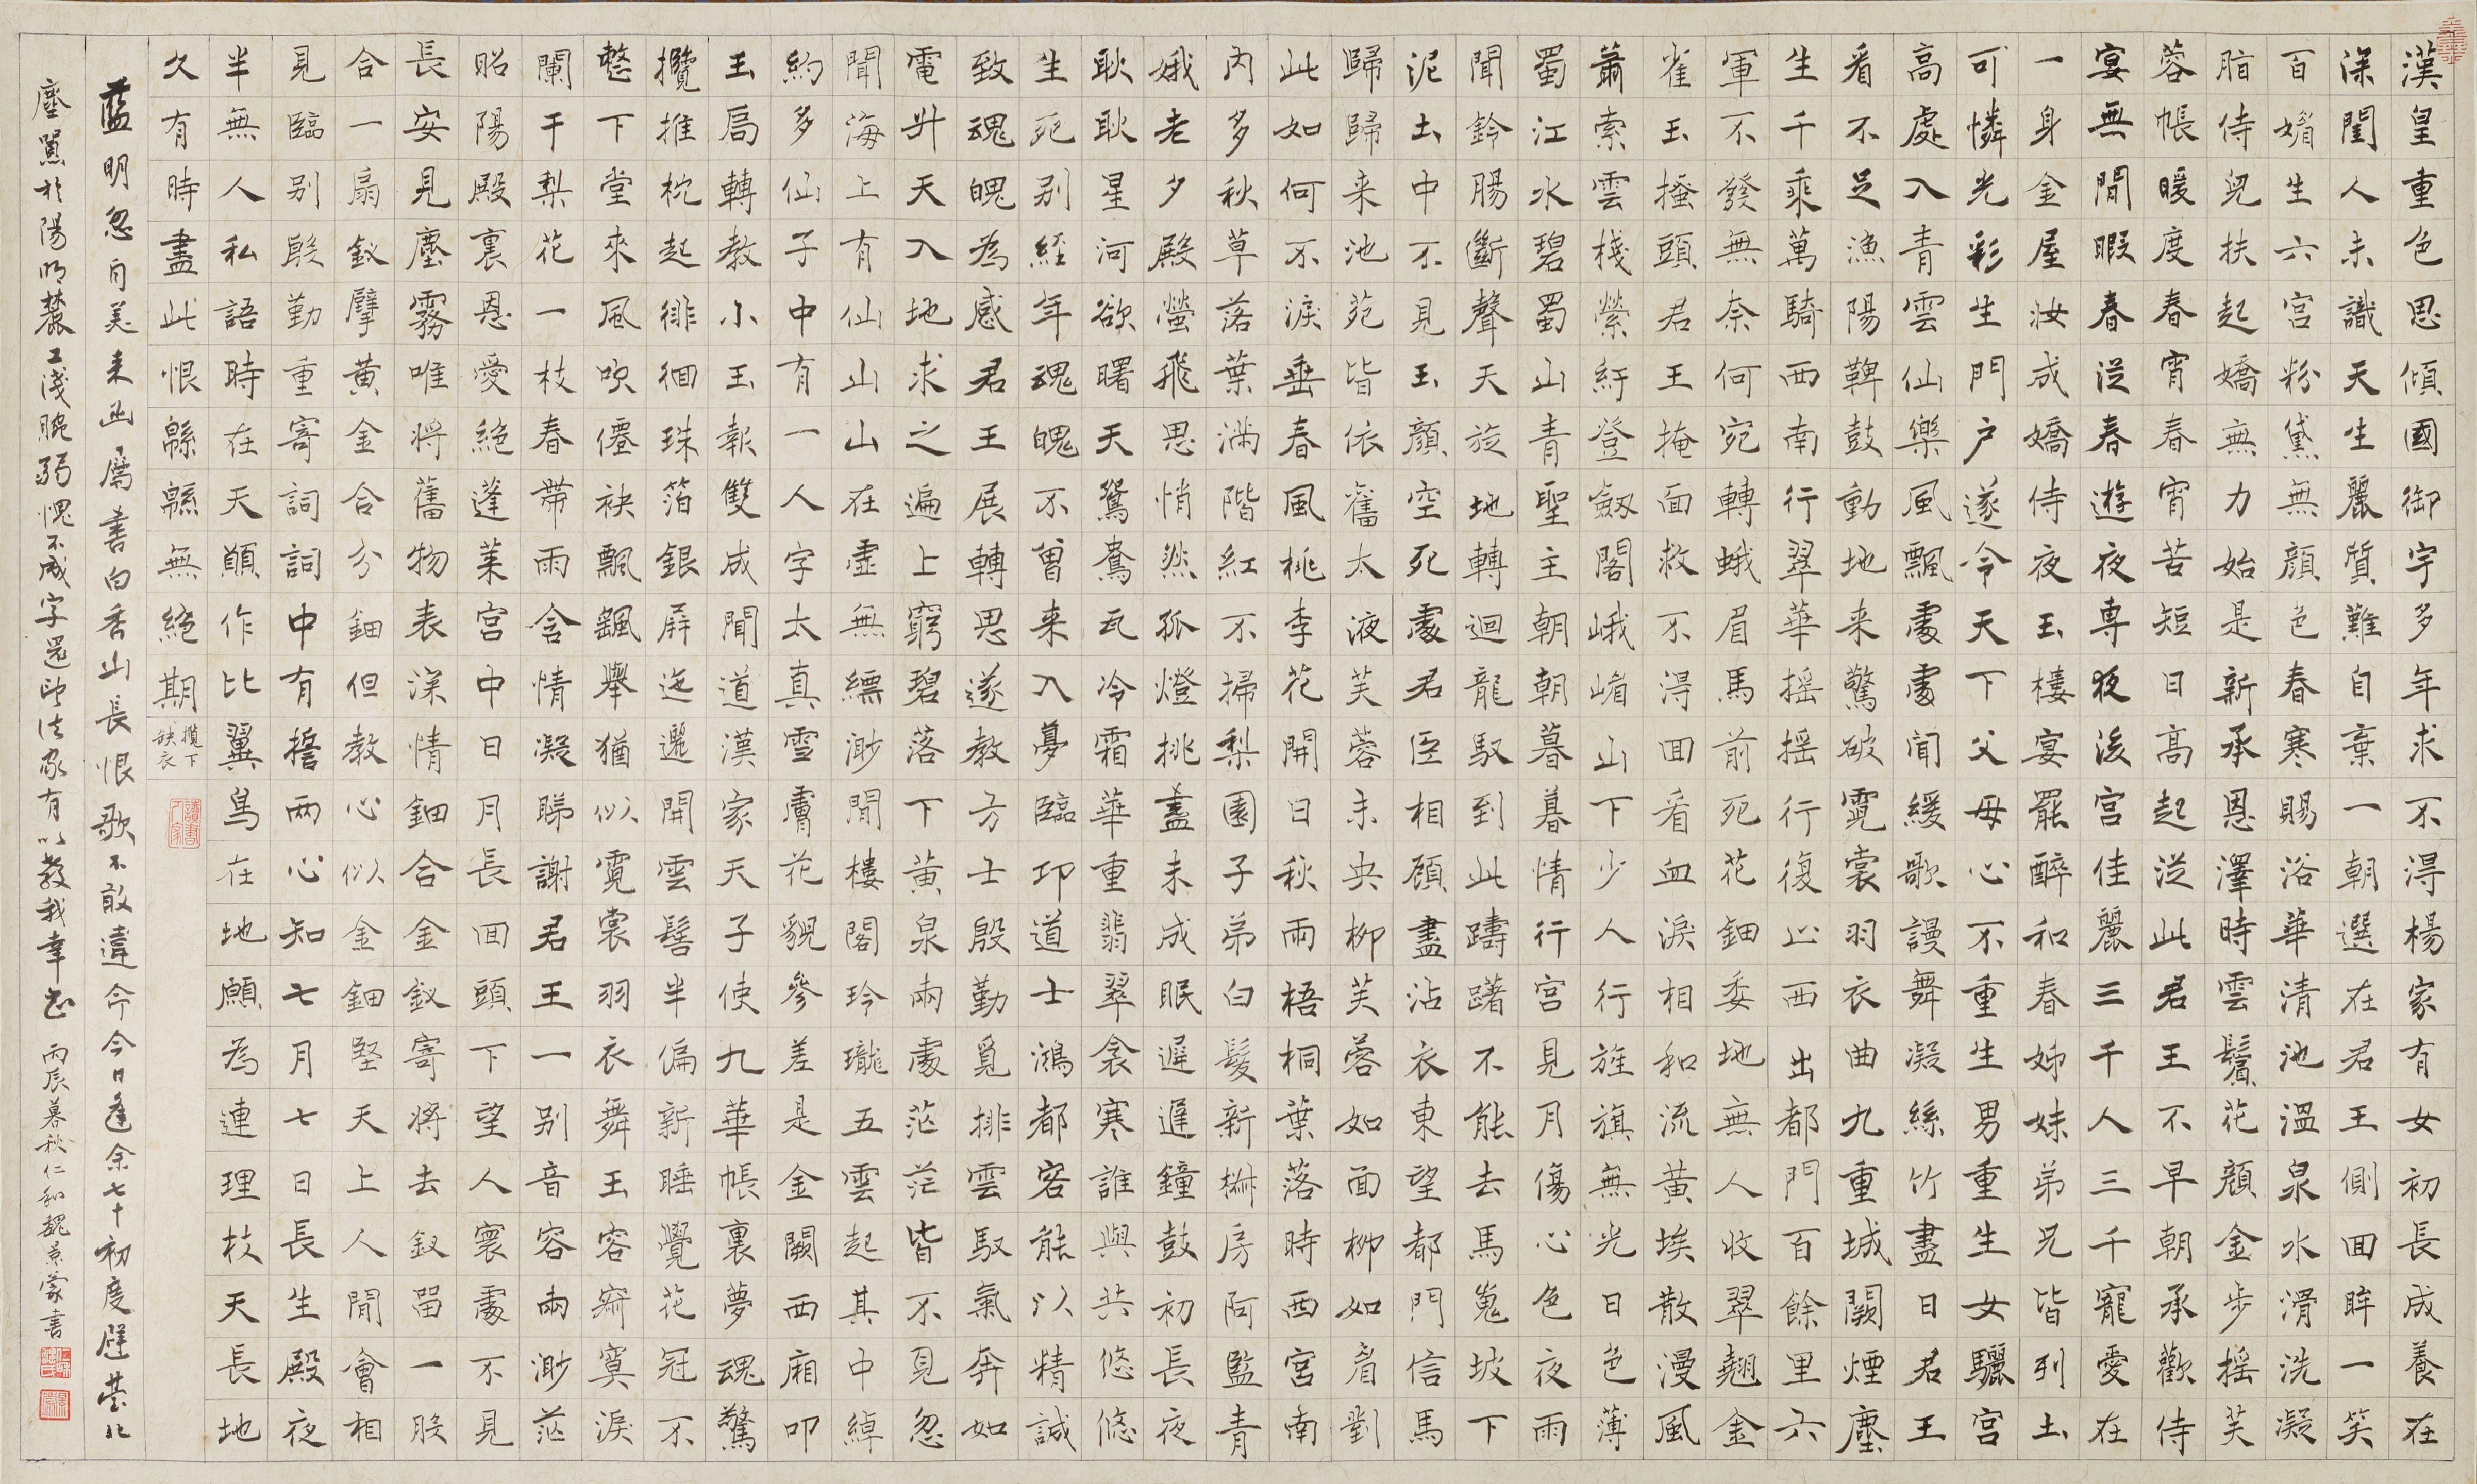 漢皇重色思傾國御宇多年求不得楊家有女初長成養在
深閨人未識天生麗質難自棄一朝選在君王側回眸一笑
百媚生六宮粉黛無顏色春寒賜浴華清池溫泉水滑洗凝
脂侍兒扶起嬌無力始是新承恩澤時雲鬢花顏金步搖芙
蓉帳暖度春宵春宵苦短日高起從此君王不早朝承歡侍
宴無閒暇春從春遊夜專夜後宮佳麗三千人三千寵愛在
一身金屋妝成嬌侍夜玉樓宴罷醉和春姊妹弟兄皆列土
可憐光彩生門戶遂令天下父母心不重生男重生女驪宮
高處入青雲仙樂風飄處處聞緩歌謾舞凝絲竹盡日君王
看不足漁陽鞞鼓動地来驚破霓裳羽衣曲九重城闕煙塵
生千乘萬騎西南行翠華搖搖行復止西出都門百餘里六
軍不發無奈何宛轉蛾眉馬前死花鈿委地無人收翠翹金
雀玉搔頭君王掩面救不得回看血淚相和流黃埃散漫風
蕭索雲棧縈紆登劍閣峨嵋山下少人行旌旗無光日色薄
蜀江水碧蜀山青聖主朝朝暮暮情行宮見月傷心色夜雨
聞鈴腸斷聲天旋地轉迴龍馭到此躊躇不能去馬嵬坡下
泥土中不見玉顏空死處君臣相顧盡沾衣東望都門信馬
歸歸来池苑皆依舊太液芙蓉未央柳芙蓉如面柳如眉對
此如何不淚垂春風桃李花開日秋雨梧桐葉落時西宮南
內多秋草落葉滿階紅不掃梨園子弟白髮新椒房阿監青
娥老夕殿螢飛思悄然孤燈挑盡未成眠遲遲鐘鼓初長夜
耿耿星河欲曙天鴛鴦瓦冷霜華重翡翠衾寒誰與共悠悠
生死别經年魂魄不曾来入夢臨邛道士鴻都客能以精誠
致魂魄為感君王展轉思遂教方士殷勤覓排雲馭氣奔如
電升天入地求之遍上窮碧落下黃泉兩處茫茫皆不見忽
聞海上有仙山山在虛無縹渺間樓閣玲瓏五雲起其中綽
約多仙子中有一人字太真雪膚花貌參差是金闕西廂叩
玉扃轉教小玉報雙成聞道漢家天子使九華帳裏夢魂驚
攬推枕起徘徊珠箔銀屏迤邐開雲髻半偏新睡覺花冠不
整下堂來風吹僊袂飄颻舉猶似霓裳羽衣舞玉容寂寞淚
闌干梨花一枝春帶雨含情凝睇謝君王一别音容兩渺茫
昭陽殿裏恩愛絕蓬萊宮中日月長回頭下望人寰處不見
長安見塵霧唯將舊物表深情鈿合金釵寄將去釵留一股
合一扇釵擘黃金合分鈿但教心似金鈿堅天上人間會相
見臨别殷勤重寄詞詞中有誓兩心知七月七日長生殿夜
半無人私語時在天願作比翼鳥在地願為連理枝天長地
久有時盡此恨緜緜無絕期
攬下
缺衣
讀書人家
藍明忽自美来函属書白香山長恨歌不敢違命今日逢余七十初度避臺北
塵囂於陽明麓工淺腕弱愧不成字還望法家有以教我幸也 丙辰暮秋仁和魏景蒙書